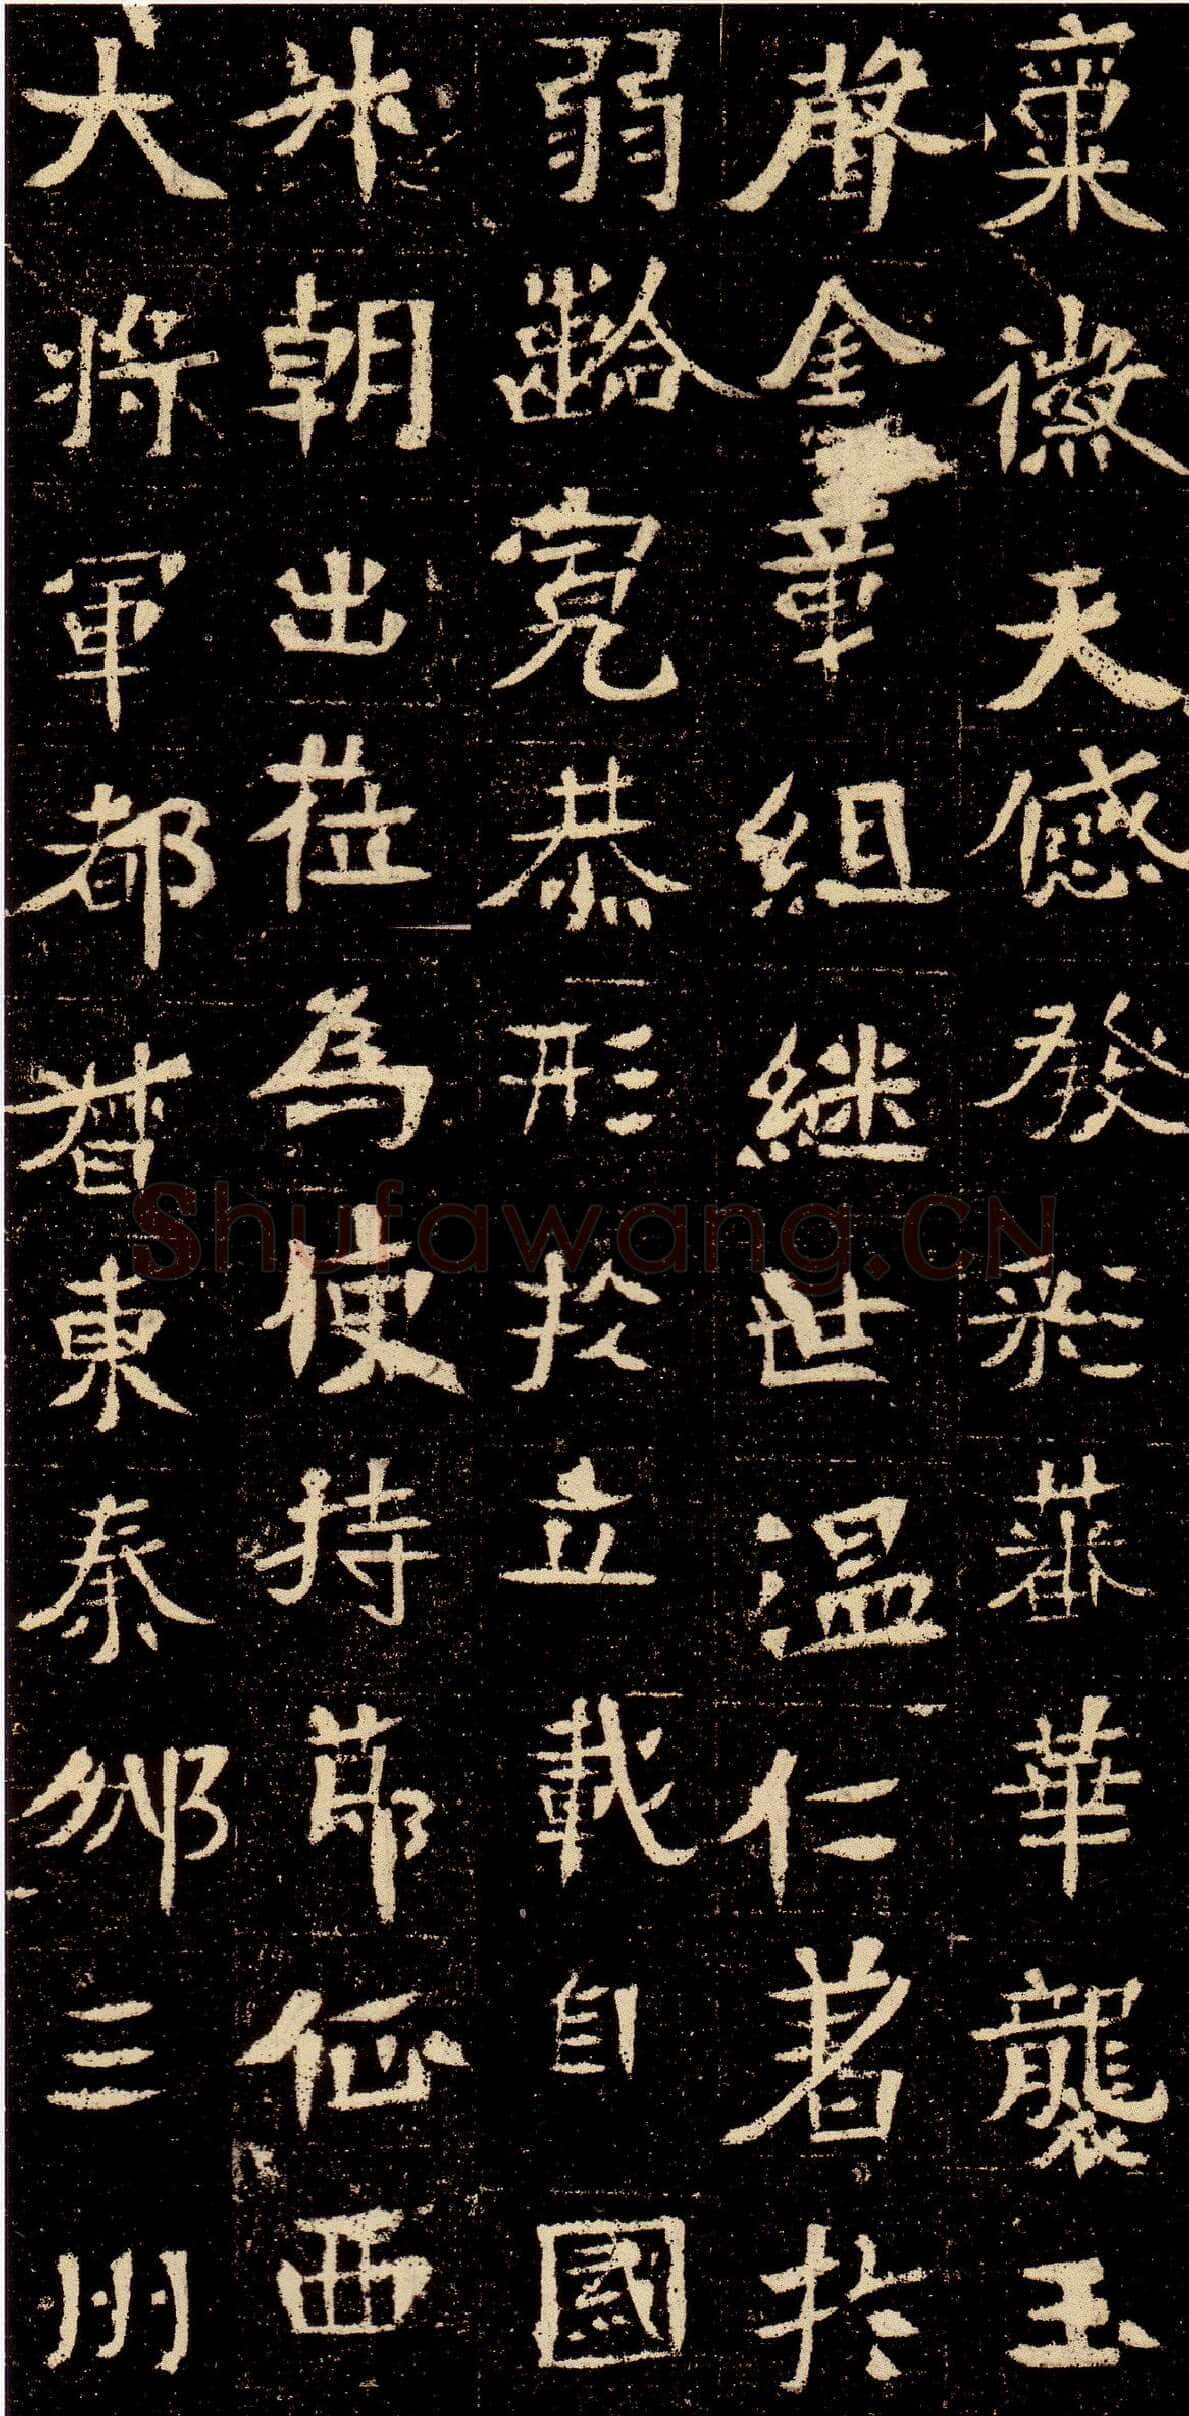 稟徽天感發彩蕃華襲玉
聲金章組継世温仁著於
弱齡寛恭形於立載自國
升朝出莅為使持節征西
大將軍都督東秦三州
Shufawang.CN